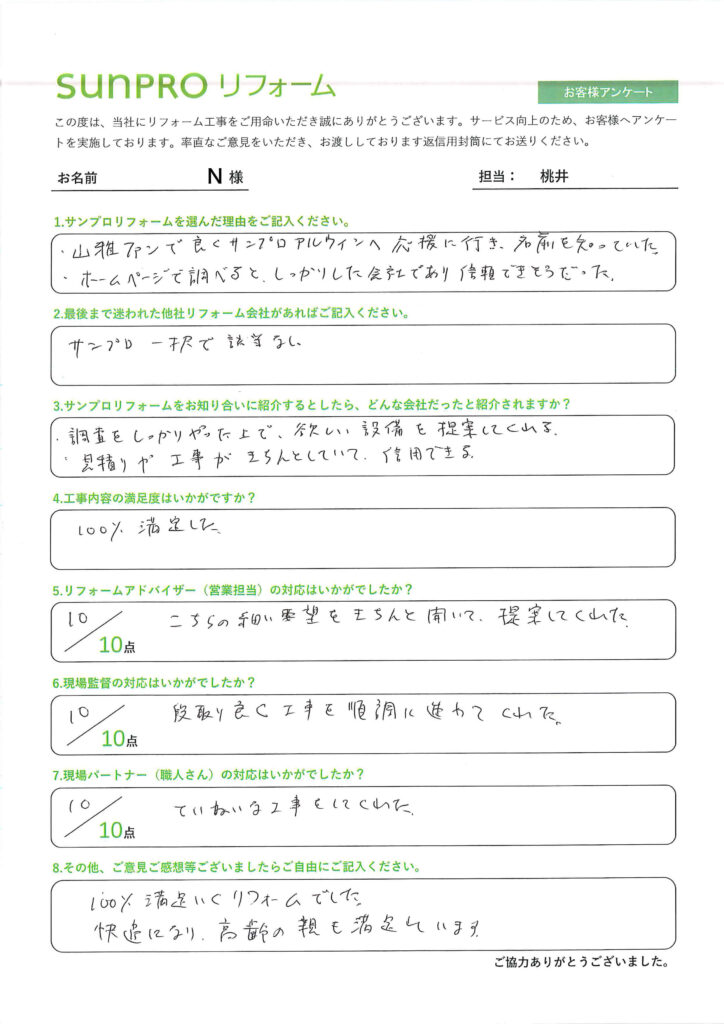 sunPRO リフォーム
お客様アンケート
この度は、当社にリフォーム工事をご用命いただき誠にありがとうございます。サービス向上のため、お客様へアンケー
トを実施しております。率直なご意見をいただき、お渡ししております返信用封筒にてお送りください。
お名前 N 様 担当： 桃井
1.サンプロリフォームを選んだ理由をご記入ください。
・山雅ファンで良くサンプロアルウィンへ応援に行き、名前を知っていた。
・ホームページで調べると、しっかりした会社であり信頼できそうだった。
2.最後まで迷われた他社リフォーム会社があればご記入ください。
サンプロ一択で該当なし
3.サンプロリフォームをお知り合いに紹介するとしたら、どんな会社だったと紹介されますか？
・調査をしっかりやった上で、欲しい設備を提案してくれる。
・見積りや工事がきちんとしていて、信用できる。
4.工事内容の満足度はいかがですか？
100% 満足した。
5.リフォームアドバイザー（営業担当）の対応はいかがでしたか？
10/10点 こちらの細い要望をきちんと聞いて、提案してくれた。
6.現場監督の対応はいかがでしたか？
10/10点 段取り良く工事を順調に進めてくれた。
7.現場パートナー（職人さん）の対応はいかがでしたか？
10/10点 ていねいな工事をしてくれた。
8.その他、ご意見ご感想等ございましたらご自由にご記入ください。
100% 満足いくリフォームでした。
快適になり、高齢の親も満足しています。
ご協力ありがとうございました。